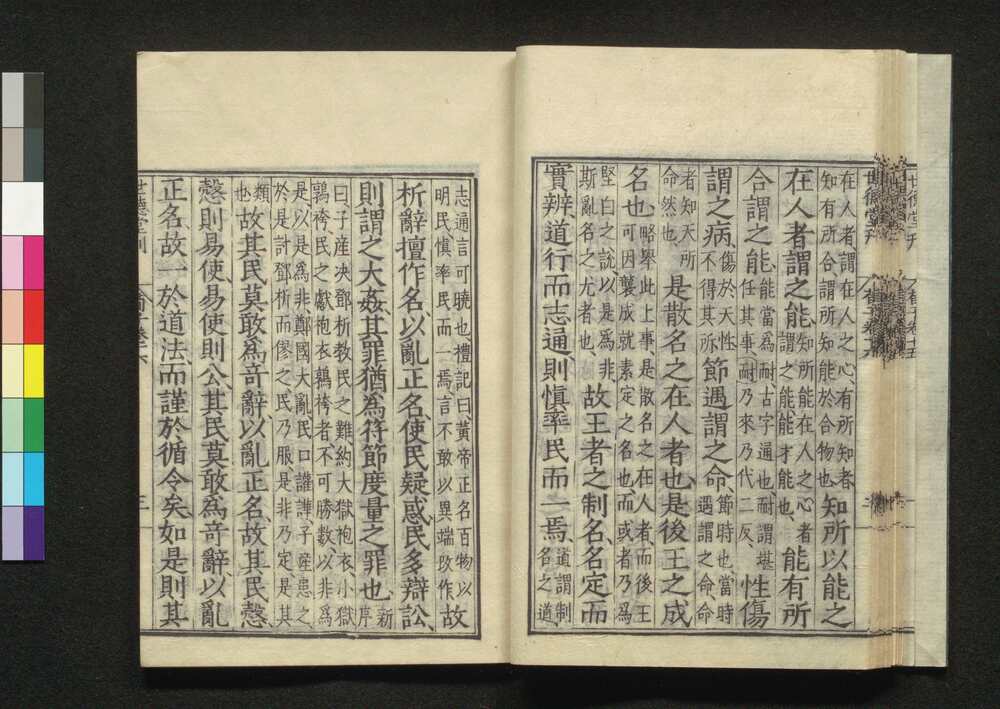 在人者謂在人之心有所知者
知有所合謂所知能於合物也
知所以能之
在人者謂之能
知所能在人之心者
謂之能能才能也
能有所
合謂之能
能當爲耐古字通也耐謂堪
任其事耐乃來乃代二反
性傷
謂之病
傷於天性
不得其所
節遇謂之命
節時也當時
遇謂之命命
者知天所
命然也
是散名之在人者也是後王之成
名也
略舉此上事是散名之在人者而後王
可因襲成就素定之名也而或者乃爲
堅白之說以是爲非
斯亂名之尤者也
故王者之制名名定而
實辨道行而志通則慎率民而一焉
道謂制
名之道
志通言可曉也禮記曰黃帝正名百物以
明民慎率民而一焉言不敢以異端攺作
故
析辭擅作名以亂正名使民疑惑民多辯訟
則謂之大姦其罪猶爲符節度量之罪也
新
序
曰子産决鄧析教民之難約大獄袍衣小獄
襦袴民之獻袍衣襦袴者不可勝數以非爲
是以是爲非鄭國大亂民口讙譁子産患之
於是討鄧析而僇之民乃服是非乃定是其
類
也
故其民莫敢爲奇辭以亂正名故其民慤
慤則易使易使則公其民莫敢爲奇辭以亂
正名故一於道法而謹於循令矣如是則其